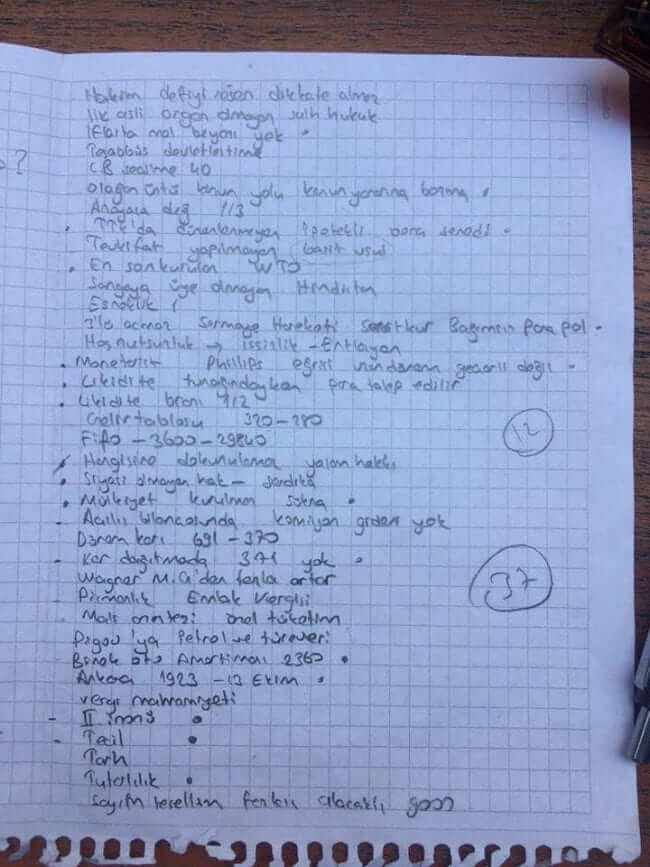 Hakim defiyi resen dikkate almaz
İlk asli organ olmayan sulh hukuk
İflasta mal beyanı yok •
Teşebbüs devletleştirme
? CB seçilme 40
olağanüstü kanun yolu kanun yararına bozma •
Anayasa değ 1/3
• TTK'da düzenlenmeyen ipotekli borç senedi •
Tevkifat yapılmayan basit usul
• En son kurulan WTO
Şangaya üye olmayan Hindistan
Esneklik 1
3'lü açmaz Sermaye Hareketi Sabit kur Bağımsız para pol -
Hoşnutsuzluk → işsizlik - Enflasyon
• Monetarist Phillips eğrisi uzun dönem geçerli değil -
• Likidite tuzağındayken para talep edilir
• Likidite oranı 1/2
Gelir tablosu 320-280
Fifo - 3600-29840
Hangisine dokunulamaz yaşam hakkı
• Siyasi olmayan hak - sendika
• Mülkiyet kurulması sükna •
- Açılış bilançosunda komisyon gideri yok
Dönem karı 691-370
- Kar dağıtmada 371 yok •
Wagner M.G'den fazla artar
- Pişmanlık Emlak Vergisi
Mali özel tüketim
Pigou'ya Petrol ve türevleri
- Binek oto Amortisman 2360 •
Ankara 1923-13 Ekim •
vergi mahremiyeti
- II. İnönü •
- Tecil •
Tarh
Tutarlılık •
Sayım tesellüm farkları alacaklı
12
37